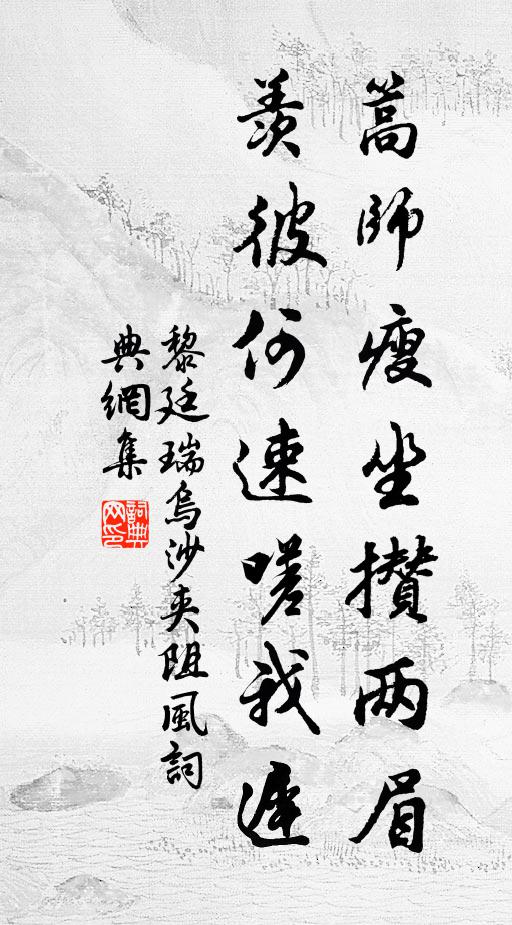 蒿師瘦坐攢两眉
羨彼何速嗟我遲
黎廷瑞烏沙夾阻風詞
典網集
詞典
网印